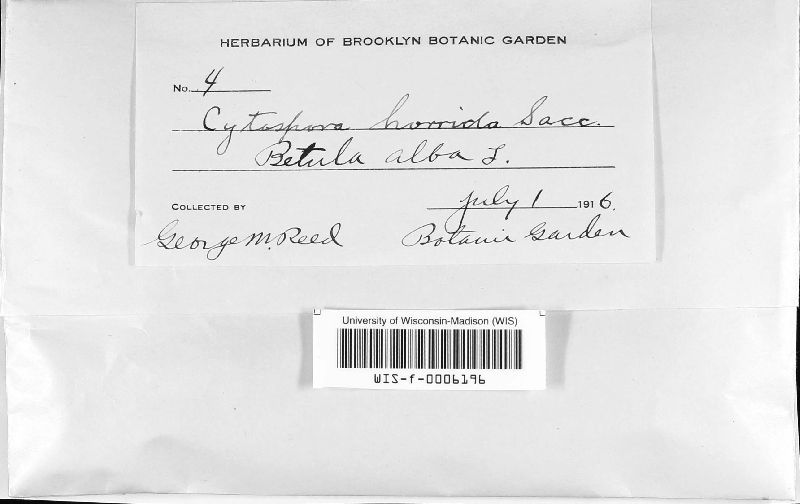 HERBARIUM OF BROOKLYN BOTANIC GARDEN
No. 4
Cytospora horrida Sacc.
Betula alba L.
COLLECTED BY
July 1 1916.
George M. Reed
Botanic Garden
University of Wisconsin-Madison (WIS)
WIS-f-0006196